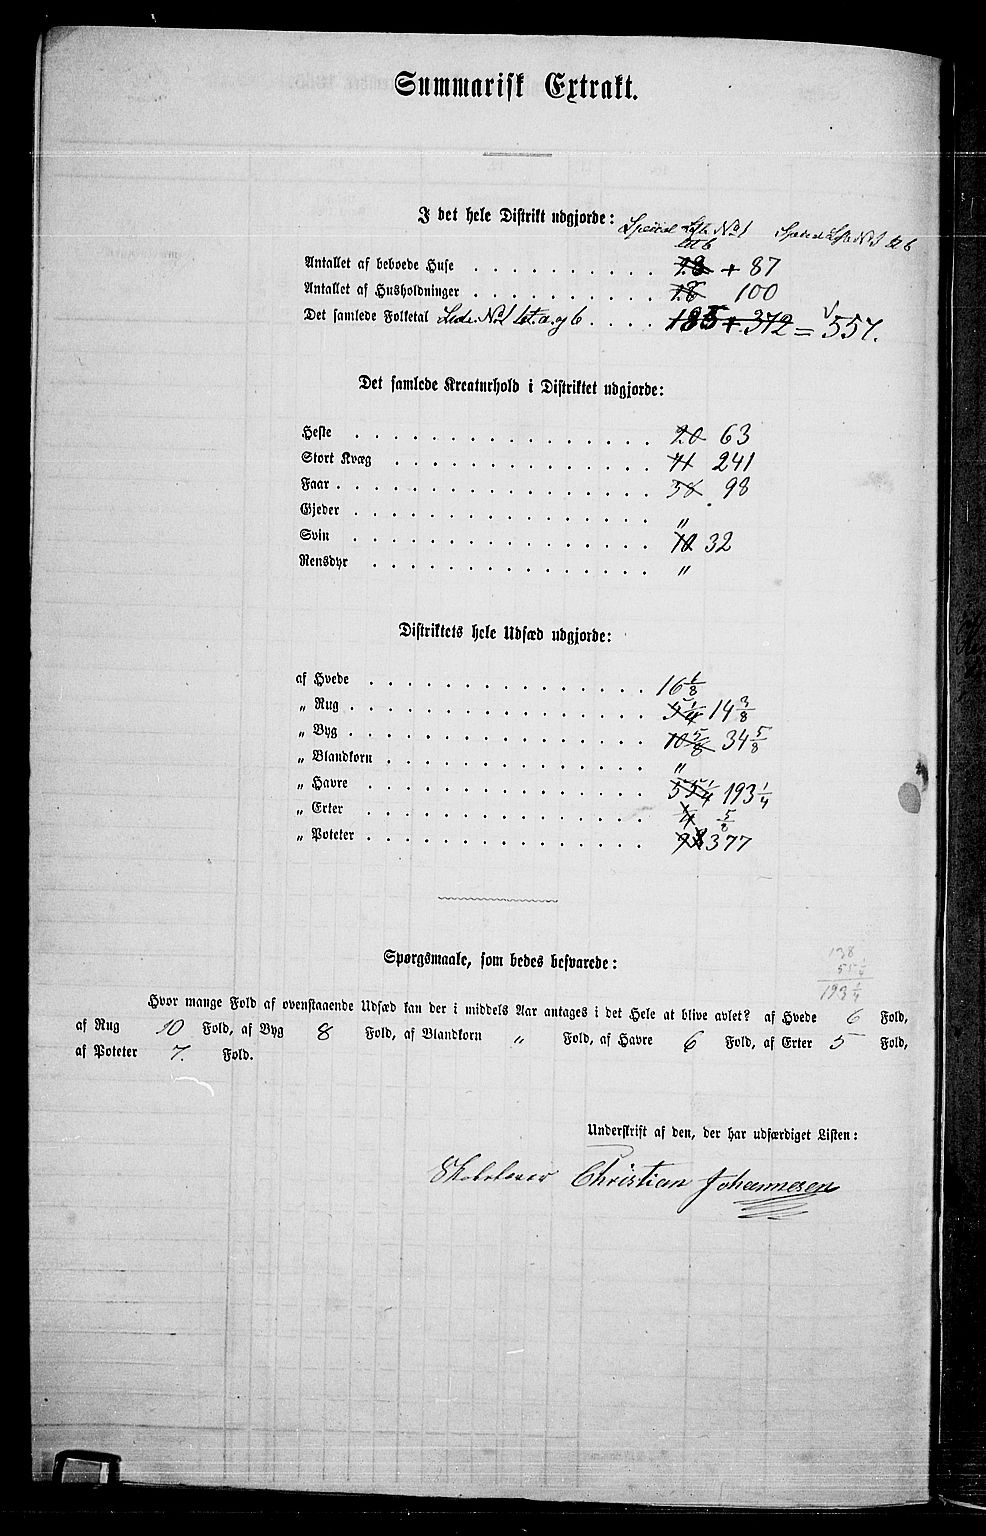 Summarisk Extrakt.
I det hele Distrikt udgjorde:
Special Liste No 1
Litt b
Special Liste No 1 Litt b
Antallet af beboede Huse 28 + 87
Antallet af Husholdninger 28 100
Det samlede Folketal Liste No 1 Lit. a. og b 185 + 372 = 557.
Det samlede Kreaturhold i Distriktet udgjorde:
Heste 20 63
Stort Kvæg 71 241
Faar 38 98
Gjeder "
Svin 10 32
Rensdyr "
Distriktets hele Udsæd udgjorde:
af Hvede 16 1/8
" Rug 5 1/4 14 3/8
" Byg 10 5/8 34 5/8
" Blandkorn "
" Havre 55 1/4 193 1/4
" Erter 1/4 5/8
" Poteter 98 377
138
55 1/4
193 1/4
Spørgsmaale, som bedes besvarede:
Hvor mange Fold af ovenstaaende Udsæd kan der i middels Aar antages i det Hele at blive avlet? af Hvede 6 Fold,
af Rug 10 Fold, af Byg 8 Fold, af Blandkorn " Fold, af Havre 6 Fold, af Erter 5 Fold,
af Poteter 7. Fold.
Underskrift af den, der har udfærdiget Listen:
Skolelærer Christian Johannesen